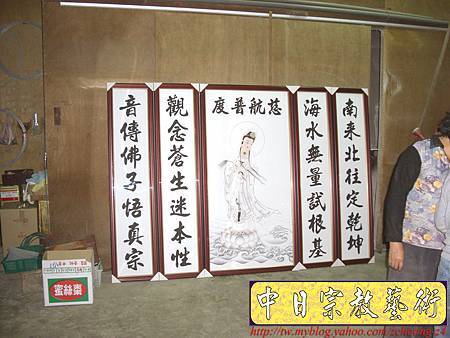 慈航普度
南來北往定乾坤
海水無量試根基
觀念蒼生迷本性
音傳佛子悟真宗
蜜絲棗
中日宗教藝術